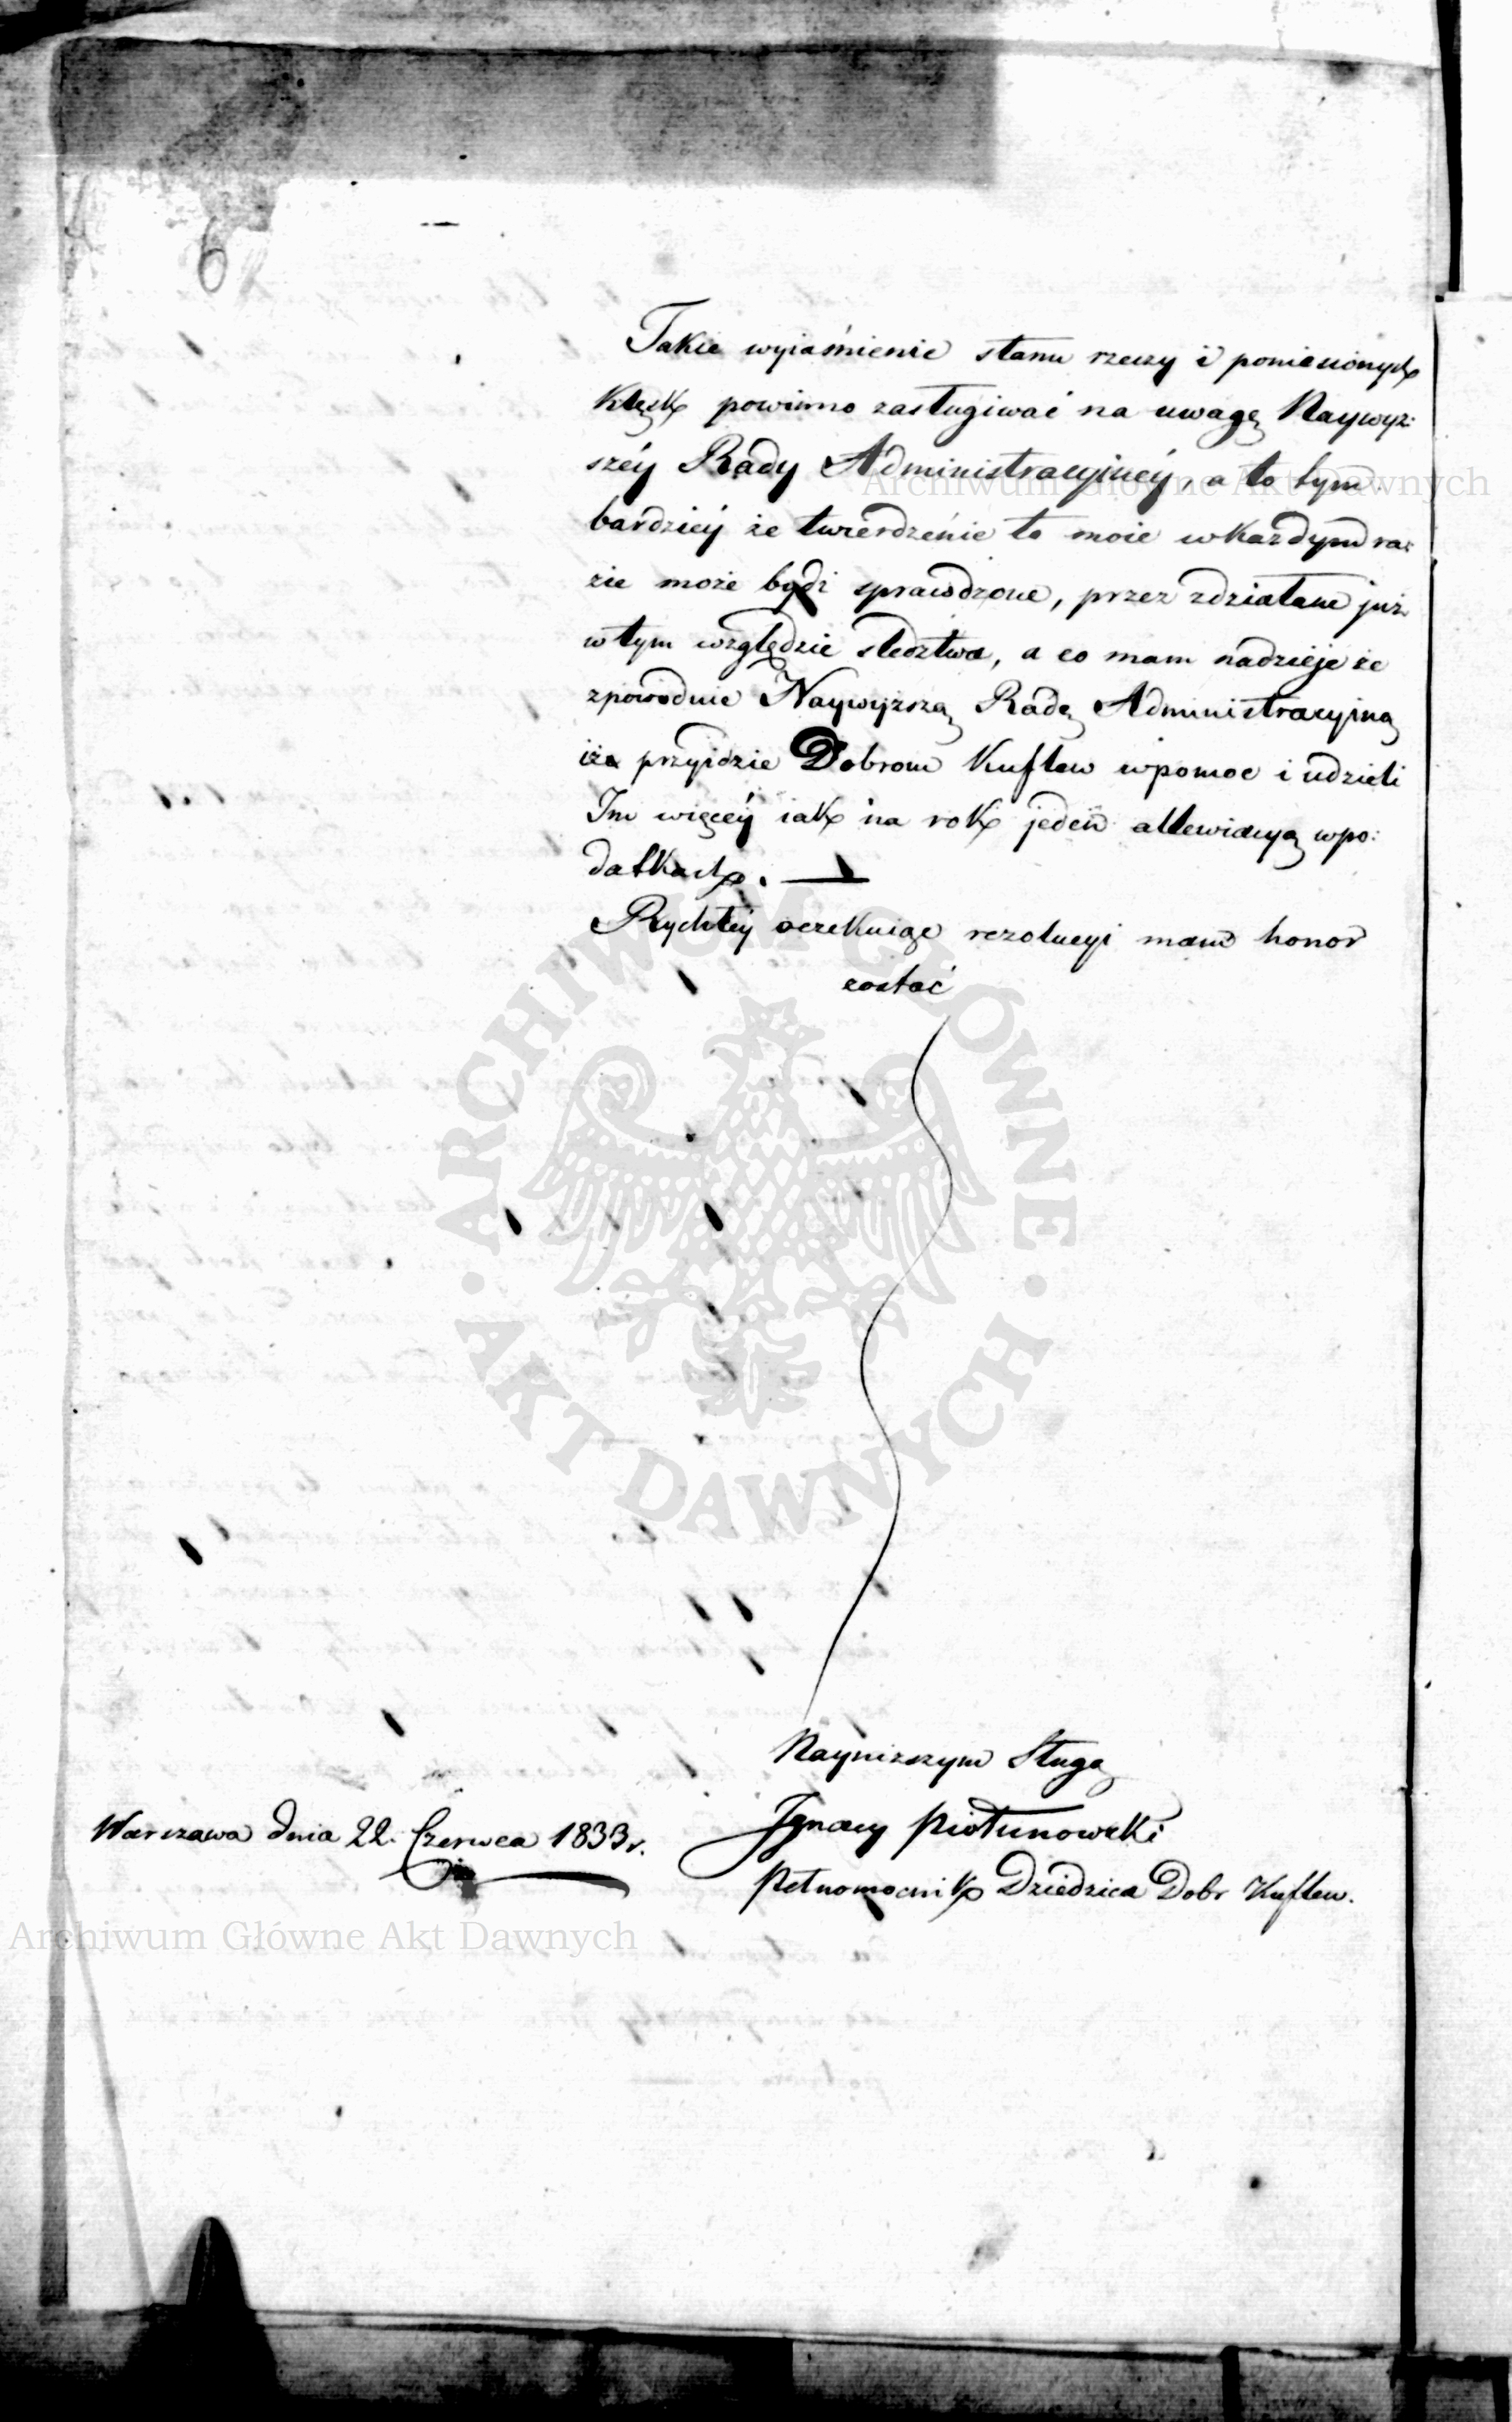 6
Takie wyiaśnienie stanu rzeczy i poniesionych
klęsk powinno zasługiwać na uwagę Naywyż:
széy Rady Administracyjnéy, a to tym
bardziéy że twierdzenie to moie w każdym ra:
zie może bydź sprawdzone, przez zdziałane już
w tym względzie sledztwa, a co mam nadzieje że
zpowoduie Naywyższą Radę Administracyjną
iże przyidzie Dobrom Kuflew w pomoc i udzieli
Im więcéy iak na rok jeden allewiacyą w po:
datkach. —
Rychłéy oczekuiąc rezolucyi mam honor
zostać
Nayniższym Sługą
Warszawa dnia 22. Czerwca 1833 r.
Ignacy Piotunowski
Pełnomocnik Dziedzica Dobr Kuflew.
Archiwum Główne Akt Dawnych
ARCHIWUM GŁÓWNE
AKT DAWNYCH
Archiwum Główne Akt Dawnych